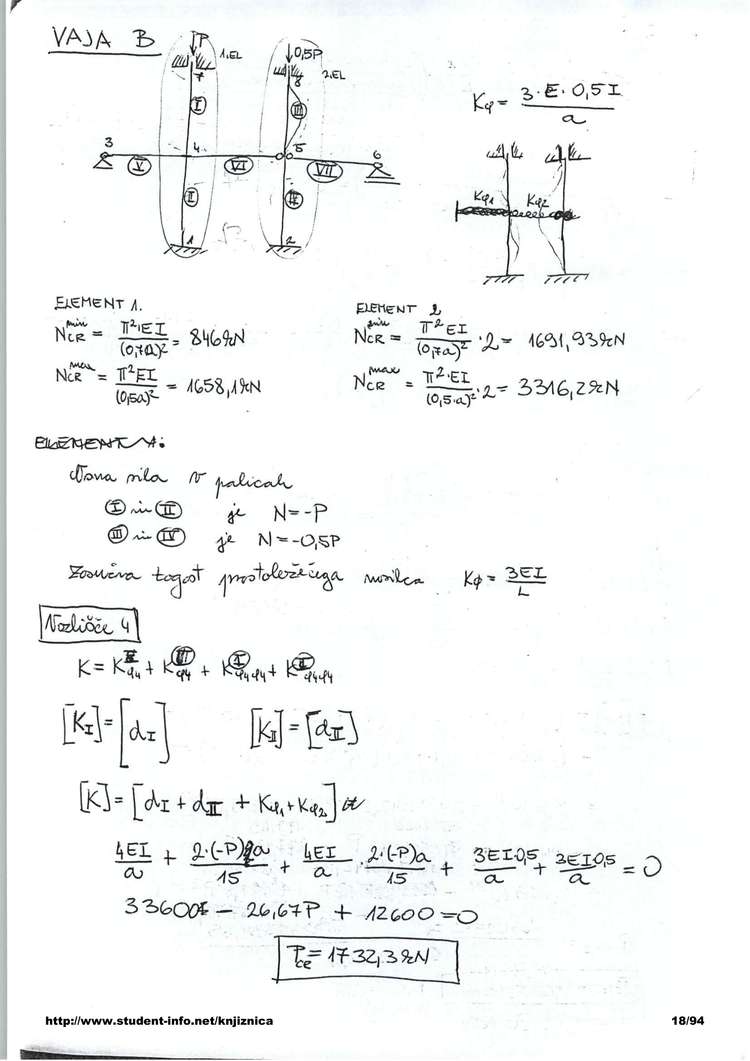 VAJA B
P
1.EL
0,5P
2.EL
7
8
I
III
3
4
5
6
V
VI
VII
II
IV
1
2
Kφ = 3·E·0,5I / a
Kφ1 Kφ2
ELEMENT 1.
N_CR^min = π²·EI / (0,7a)² = 846kN
N_CR^max = π²EI / (0,5a)² = 1658,1kN
ELEMENT 2
N_CR^min = π²EI / (0,7a)² · 2 = 1691,93kN
N_CR^max = π²·EI / (0,5·a)² · 2 = 3316,2kN
ELEMENT 1:
Osna sila v palicah
I in II je N=-P
III in IV je N=-0,5P
Zasučna togost prostoležečega nosilca Kφ = 3EI / L
Vozlišče 4
[K_I]=[d_I] [K_II]=[d_II]
[K]=[d_I + d_II + Kφ1 + Kφ2]
4EI/a + 2·(-P)a/15 + 4EI/a · 2·(-P)a/15 + 3EI·0,5/a + 3EI0,5/a = 0
33600 - 26,67P + 12600 = 0
P_cr = 1732,3kN
http://www.student-info.net/knjiznica
18/94